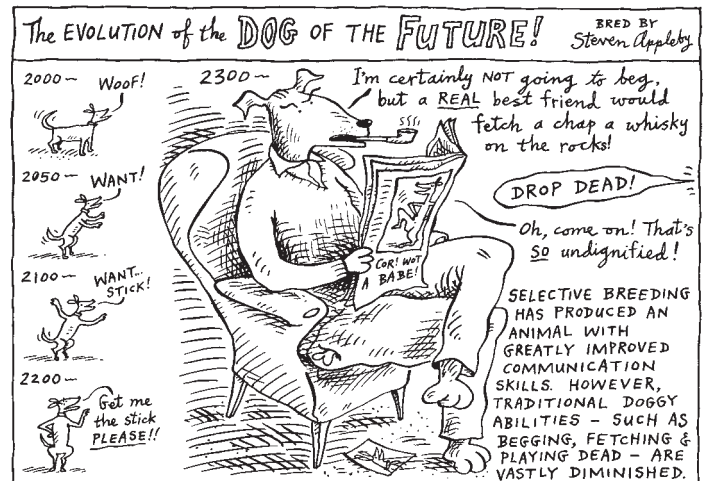 The EVOLUTION of the DOG OF THE FUTURE!
BRED BY
Steven Appleby
2000~
WOOF!
2050~
WANT!
2100~
WANT...
STICK!
2200~
Get me
the stick
PLEASE!!
2300~
I'm certainly NOT going to beg,
but a REAL best friend would
fetch a chap a whisky
on the rocks!
DROP DEAD!
Oh, come on! That's
SO undignified!
COR! WOT
A BABE!
SELECTIVE BREEDING
HAS PRODUCED AN
ANIMAL WITH
GREATLY IMPROVED
COMMUNICATION
SKILLS. HOWEVER,
TRADITIONAL DOGGY
ABILITIES – SUCH AS
BEGGING, FETCHING &
PLAYING DEAD – ARE
VASTLY DIMINISHED.